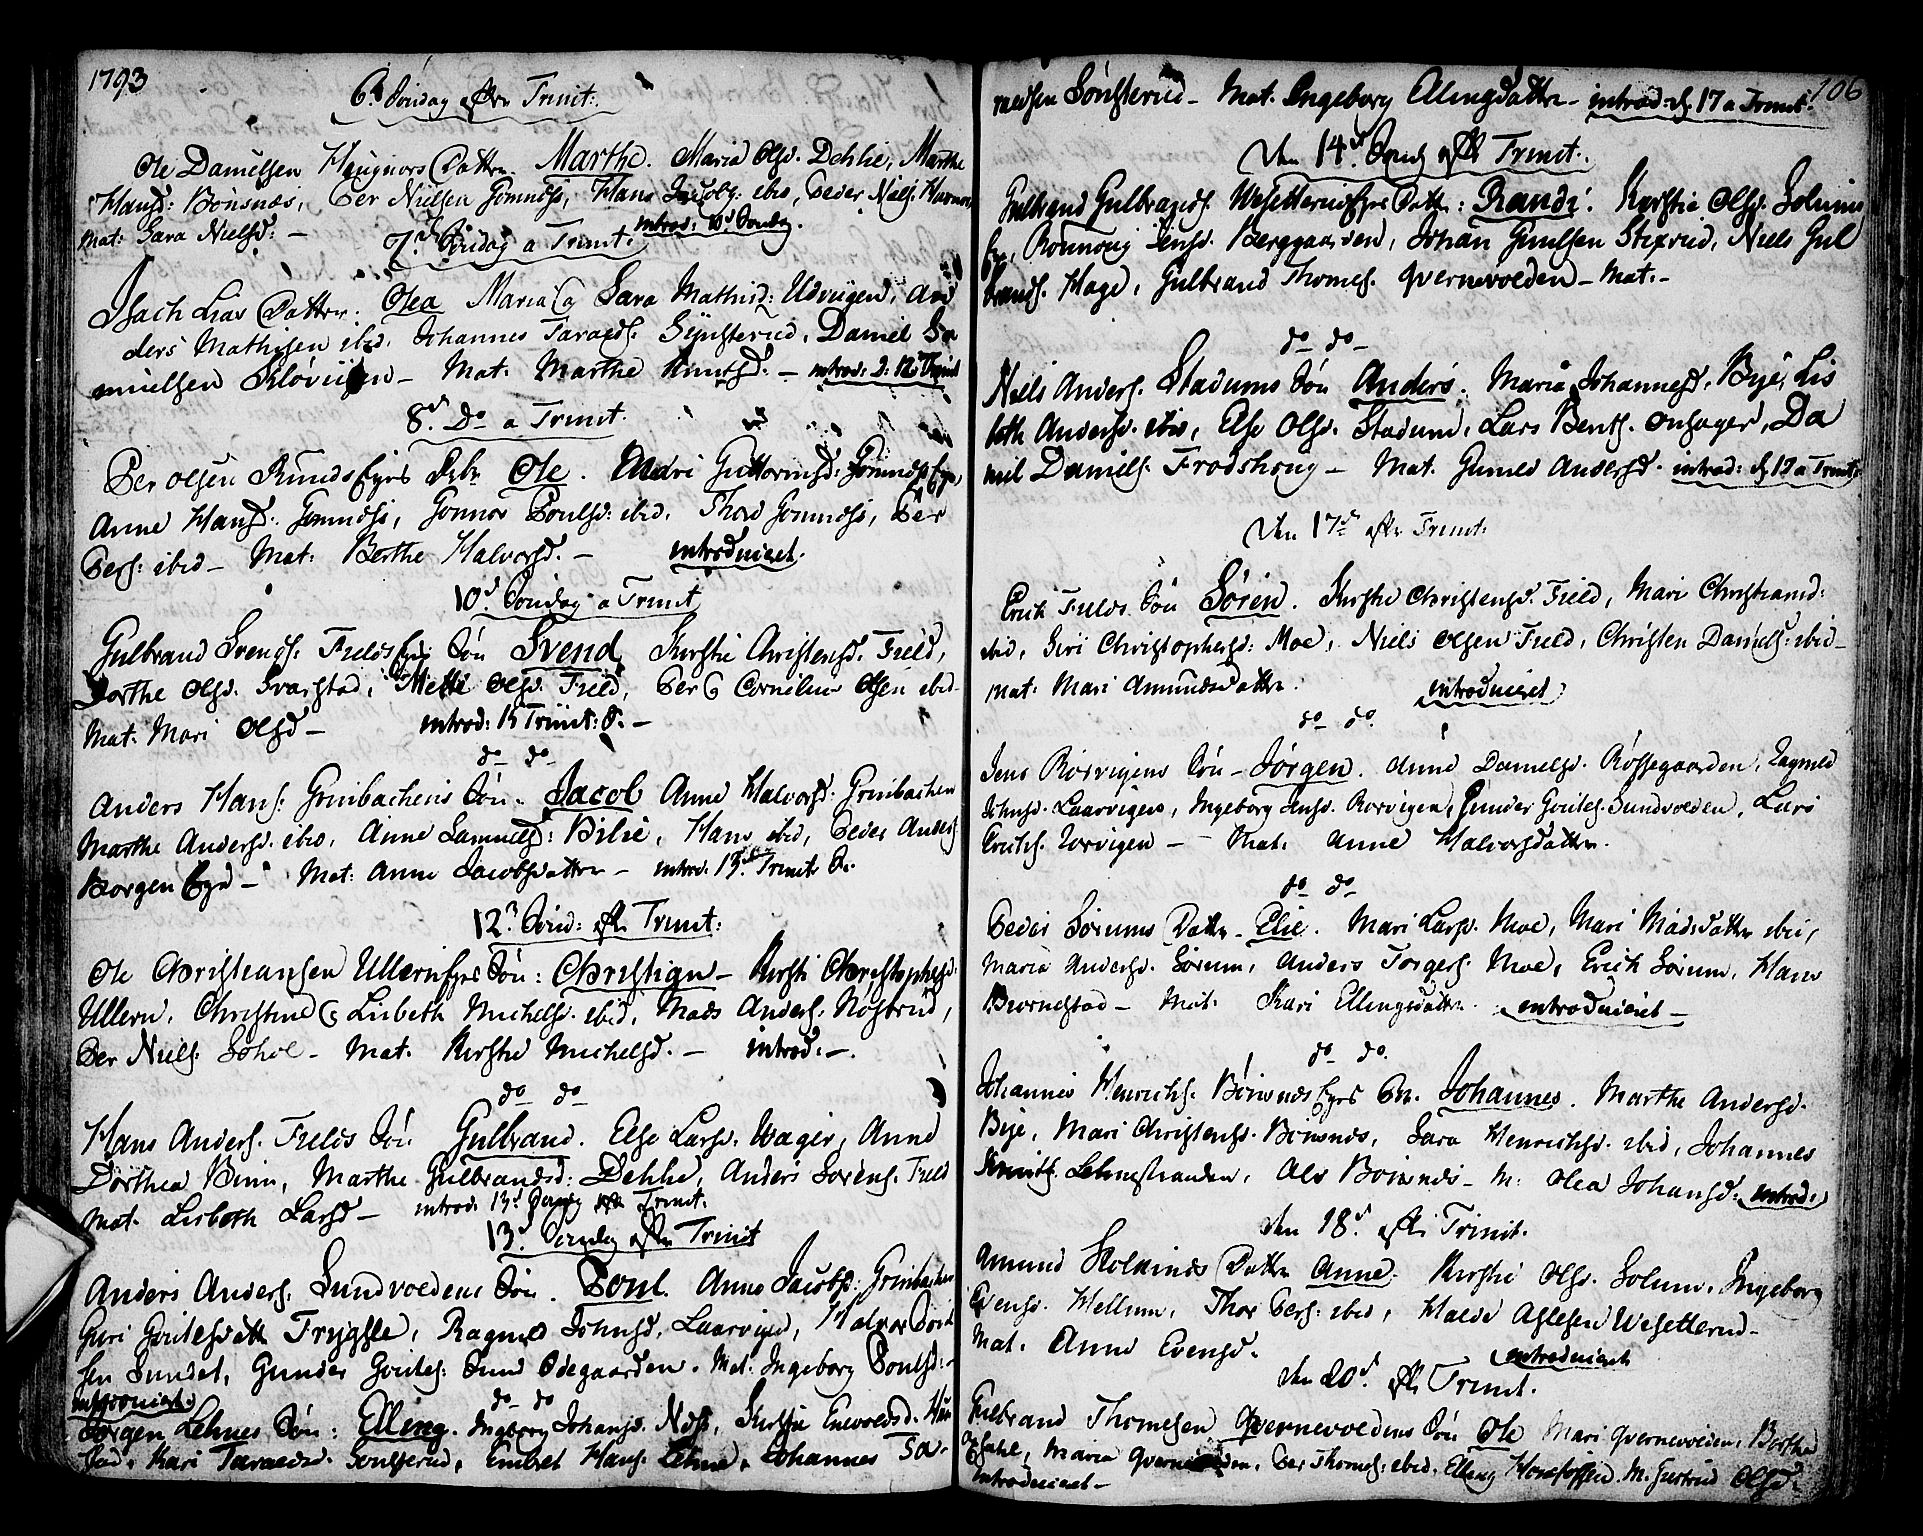 1793
6te Søndag efter Trinit:
Ole Danielsen Haugnors Datter Marthe. Maria Olsd. Dehlie, Marthe
Hansd: Bønsnæs, Peer Nielsen Gomnæs, Hans Jacobs: ibid, Peder Niels:
Mat: Sara Nielsd: – introd: 10d Søndag.
7d Søndag a Trinit:
Isach Lias Datter: Olea Maria og Sara Mathisd: Udvigen, An
ders Mathisen ibid, Johannes Taralds. Synsterud, Daniel Sa
muelsen Kløvigen – Mat. Marthe Knutsd: – introd: d: 12 Trinit
8d Do a Trinit.
Peer Olsen Runds Eyes Ole. Mari Guttormsd: Gomnæs Eye,
Anne Hansd: Gomnæs, Gonnor Poulsd: ibid, Thord Gomnæs, Peer
Pers: ibid – Mat: Berthe Halvorsd. – introduceret.
10d Søndag a Trinit
Gulbrand Svends. Fields Eye Søn Svend, Kirstie Christensd. Field,
Dorthe Olsd. Svarstad, Mette Olsd. Field, Peer & Cornelius Olsen ibid –
Mat. Mari Olsd – introd: 15 Trinit: S. –
do do
Anders Hans: Grinbachens Søn. Jacob Anne Halvorsd: Grinbachen
Marthe Andersd. ibid, Anne Samuelsd: Bilie, Hans ibid, Peder Anders:
Borgen Eye – Mat: Anne Jacobsdatter – introd. 13d Trinit S.
12d Sønd: efter Trinit:
Ole Christiansen Ullern Eyes Søn: Christian – Kirsti Christophersd:
Ullern, Christine & Lisbeth Michelsd. ibid, Mads Anders: Nøstrud,
Peer Niels. Sohol – Mat. Kirstie Michelsd. – introd: –
do do
Hans Anders. Fields Søn Gulbrand. Else Larsd. Wager, Anne
Dorthea Binn, Marthe Gulbrandsd: Dehlie, Anders Sørens. Field
Mat. Lisbeth Larsd – introd: 13d Søndag efter Trinit.
13d Søndag efter Trinit
Anders Anders. Sundvoldens Søn. Poul. Anne Jacobsd: Grinbachen
Guri Goutesdatter Trygsle, Ragnil Johnsd. Laarvigen, Halvor Poul
sen Sundet, Gunder Goutes: Sund Ødegaarden. Mat. Ingeborg Poulsd: –
introduceret. do do
Jørgen Lehnes Søn: Elling. Ingeborg Johansd. Næs, Kirstie Enevoldsd.
stad, Kari Taraldsd. Sønsterud, Embret Hans. Lehne, Johannes Ta-
106
raldsen Sønsterud – Mat. Ingeborg Elingsdatter – introd: d: 17 a Trinit.
Den 14d Sønd efter Trinit.
Gulbrand Gulbrands. Wesetterud Eyes Datter: Randi. Kirstie Olsd. Solum
Eye, Rønnoug Jensd. Berggaarden, Johan Gunlsen Stixrud, Niels Gul
brands. Hage, Gulbrand Thomes. Qvernevolden – Mat: –
do do –
Niels Anders. Stadums Søn Anders. Maria Johannesd. Bye, Lis
beth Andersd. ibid, Else Olsd. Stadum, Lars Bents. Onsager, Da
niel Daniels. Frodshoug – Mat. Gunild Andersd. introd: d: 17 a Trinit:
Den 17d efter Trinit:
Erich Fields Søn Søren. Kirstie Christensd. Field, Mari Christiansd:
ibid, Siri Christophersd: Moe, Niels Olsen Field, Christen Daniels: ibid –
Mat: Mari Amundsdatter. introduceret
do do.
Jens Rørvigens Søn – Jørgen. Anne Danielsd. Røssegaarden, Ragnild
Johnsd. Laarvigen, Ingeborg Jensd. Rørvigen, Gunder Goutes: Sundvolden, Lars
Erichs. Rørvigen – Mat. Anne Halvorsdatter.
do do
Peder Sørums Datter – Elie. Mari Larsd. Moe, Mari Madsdatter ibid,
Maria Andersd. Sørum, Anders Torgers. Moe, Erich Sørum, Hans
Biørnestad – Mat. Kari Ellingsdatter. introduceret –
do do.
Johannes Henrichs. Bønsnæs Eyes Johannes. Marthe Andersd.
Bye, Mari Christensd. Bønsnæs, Sara Henrichsd. ibid, Johannes
Knuts. Lehnestranden, Alv Bønsnæs – M: Olea Johansd: introd:
Den 18d efter Trinit.
Amund Kolkinds Datter Anne. Kirstie Olsd. Solum, Ingeborg
Evensd. Hellum, Thor Pers: ibid, Halvor Aslesen Wesetterud –
Mat. Anne Evensd. introduceret
Den 20d efter Trinit.
Gulbrand Thomesen Qvernevoldens Søn Ole Mari Qvernevolden, Berthe
Opsahl, Maria Qvernevolden, Peer Thomes: ibid, Elling. M. Giertrud Olsd.
introduceret –